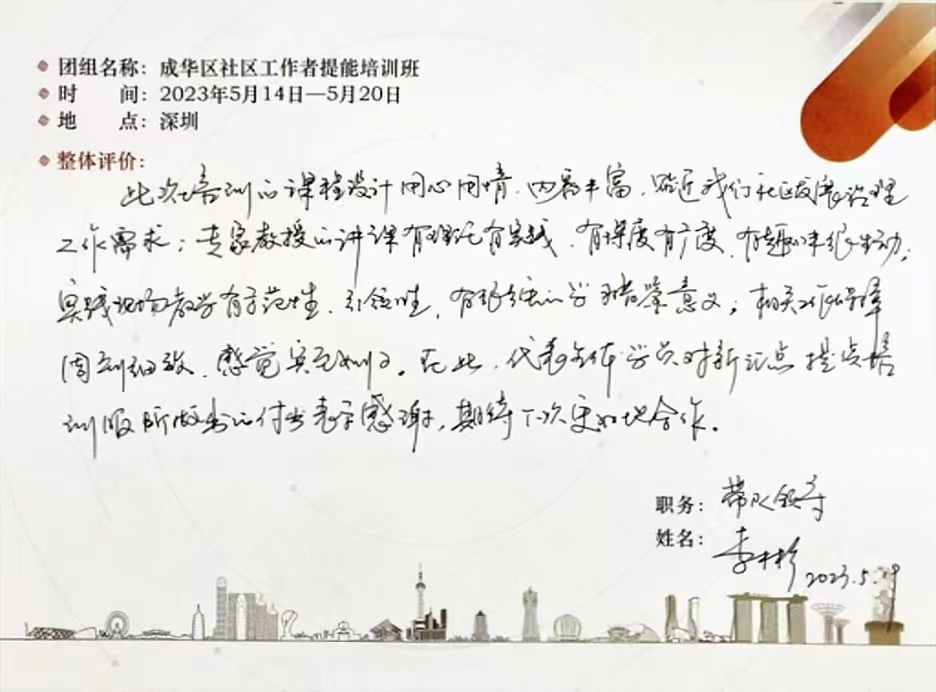 团组名称：成华区社区工作者提能培训班
时 间：2023年5月14日—5月20日
地 点：深圳
整体评价：
此次培训的课程设计用心用情，内容丰富，贴近我们社区发展治理
工作需求；专家教授的讲课有理论有实践、有深度有广度、有趣味很生动；
实践现场教学有示范性、引领性，有很强的学习借鉴意义；相关工作保障
周到细致、感觉宾至如归。在此，代表全体学员对新起点提供培
训服所做出的付出表示感谢，期待下次更好地合作。
职务：带队领导
姓名：李彬
2023.5.19